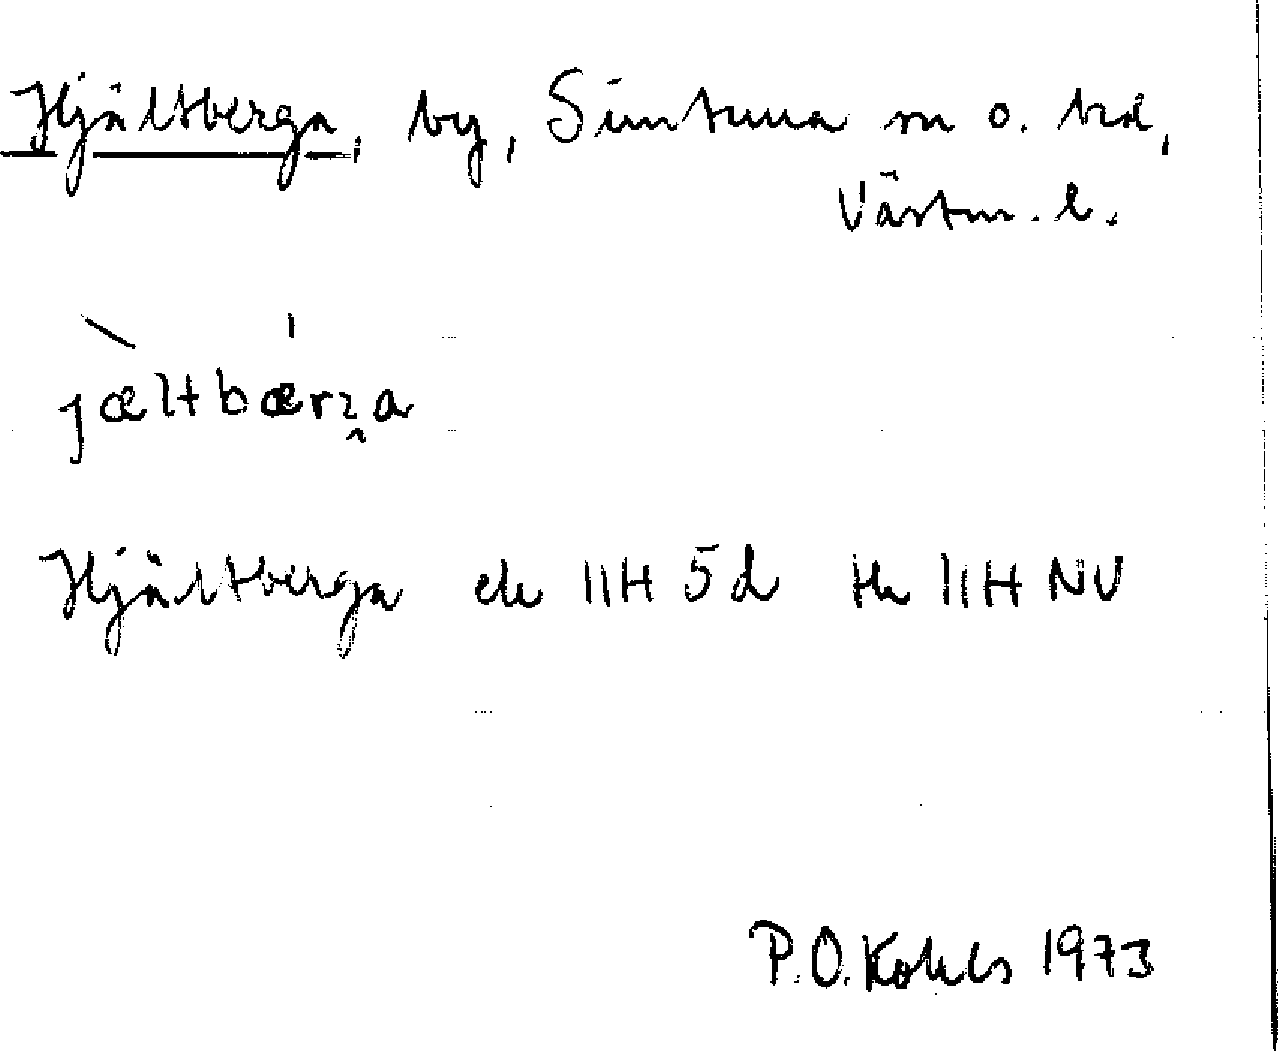 Hjältberga, by, Simtuna sn o. hd,
Västm. l.
jæltbærga
Hjältberga ek 11H 5d tk 11H NV
P.O. 1973